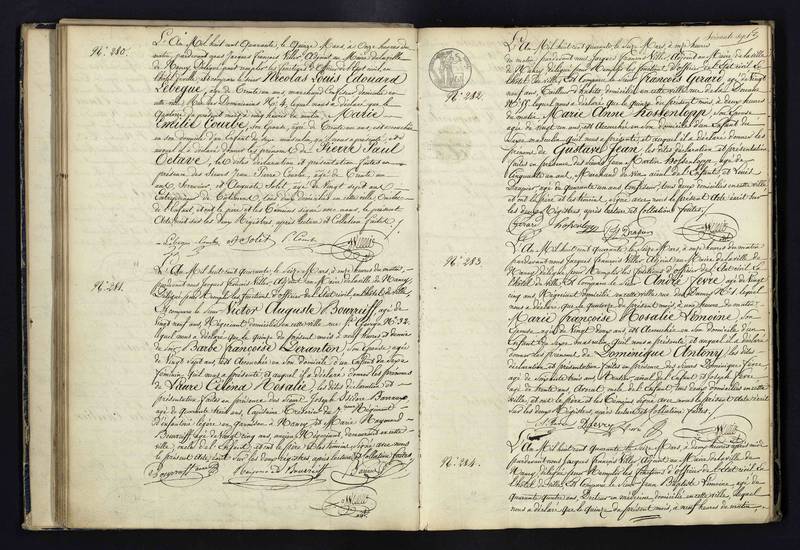 N.° 280.
L'An Mil huit cent quarante, le quinze Mars, à onze heures du
matin, pardevant nous Jacques François Villier, Adjoint au Maire de la ville
de Nancy, délégué pour remplir les fonctions d'officier de l'État civil, en
l'hôtel de ville, Est comparu le Sieur Nicolas Louis Édouard
Lebègue, âgé de trente ans, marchand Confiseur domicilié en
cette ville rue des Dominicains N.° 4, lequel nous a déclaré que le
quatorze du présent mois, à cinq heures du matin, Marie
Emilie Courbe, son épouse, âgée de trente ans, est accouchée
en son domicile d'un Enfant du sexe masculin, qu'il nous présente, et
auquel il a déclaré donner les prénoms de Pierre Paul
Octave, les dites déclaration et présentation faites en
présence des Sieurs Jean Pierre Courbe, âgé de trente
ans, et Auguste Solet, âgé de vingt sept ans
Entrepreneur de bâtiment, tous deux domiciliés en cette ville,
de l'Enfant, et ont le père et les témoins signé avec nous, le présent
Acte, écrit sur les deux Registres, après lecture et Collation faites.
Lebègue A. Solet P. Courbe
N.° 281.
L'An Mil huit cent quarante, le seize Mars, à onze heures du matin,
pardevant nous Jacques François Villier, Adjoint au Maire de la ville de Nancy,
délégué pour remplir les fonctions d'officier de l'État civil, en l'hôtel de ville,
Est comparu le Sieur Victor Auguste Bourreiff, âgé de
vingt neuf ans, Négociant domicilié en cette ville rue S.t George N.° 32.
lequel nous a déclaré que le quinze du présent mois à neuf heures et demie
du soir Barbe Françoise Deranton, son épouse, âgée
de vingt sept ans, est accouchée, en son domicile d'un Enfant du sexe
féminin, qu'il nous a présenté, et auquel il a déclaré donner les prénoms
de Laure Célena Rosalie, les dites déclaration et
présentation faites en présence des Sieurs Joseph Isidore
âgé de quarante trois ans, Capitaine Trésorier du Régiment
d'infanterie légère, en garnison à Nancy, et Marie Raymond
Bourreiff âgé de ans, ancien Négociant demeurant en cette
ville, de l'Enfant, et ont le père et les témoins signé avec nous
le présent Acte, écrit sur les deux registres, après lecture et collation faites.
Bourreiff
N.° 282.
L'An Mil huit cent quarante, le seize Mars, à onze heures
du matin, pardevant nous Jacques François Villier, Adjoint au Maire de la ville
de Nancy, délégué pour remplir les fonctions d'officier de l'État civil, en
l'hôtel de ville, Est comparu le Sieur François Gérard, âgé de vingt
ans, Tailleur d'habits, domicilié en cette ville, rue de la Douane
N.° lequel nous a déclaré que le quinze du présent mois, à deux heures
du matin, Marie Anne Hossenlopp, son épouse
âgée de vingt ans est accouchée en son domicile d'un Enfant du
sexe masculin qu'il nous présente, et auquel il a déclaré donner les
prénoms de Gustave Jean, les dites déclaration et présentation
faites en présence des Sieurs Jean Martin Hossenlopp, âgé de
cinquante un ans, Marchand de vin aïeul de l'Enfant, et Louis
Drapier, âgé de quarante un ans, tous deux domiciliés en cette ville,
et ont le père et les témoins, signé avec nous le présent Acte écrit sur
les deux Registres, après lecture et Collation faites.
Gérard Hossenlopp
N.° 283
L'An Mil huit cent quarante, le seize Mars, à onze heures du matin
pardevant nous Jacques François Villier, Adjoint au Maire de la ville de
Nancy, délégué pour remplir les fonctions d'officier de l'État civil, en
l'hôtel de ville, Est comparu le Sieur André Fèvre, âgé de
cinq ans, Négociant domicilié en cette ville, rue lequel
nous a déclaré que le quatorze du présent mois, à une heure du matin,
Marie Françoise Rosalie Lemoine, son
épouse, âgée de vingt deux ans, est accouchée, en son domicile d'un
Enfant du sexe masculin, qu'il nous a présenté, et auquel il a déclaré
donner les prénoms de Dominique Antony, les dites
déclaration et présentation faites en présence des Sieurs Dominique Fèvre,
âgé de soixante trois ans, Rentier, aïeul de l'Enfant,
âgé de trente ans, Avocat, oncle de l'Enfant tous deux domiciliés en cette
ville, et ont le père et les témoins signé avec nous, le présent Acte écrit
sur les deux Registres, après lecture et collation faites.
N.° 284.
L'An Mil huit cent quarante, le seize Mars, à deux heures
pardevant nous Jacques François Villier, Adjoint au Maire de la ville de
Nancy, délégué pour remplir les fonctions d'officier de l'État civil, en
l'hôtel de ville, Est comparu le Sieur Jean Baptiste Lemoine, âgé de
quarante quatre ans, Docteur en médecine, domicilié en cette ville, lequel
nous a déclaré que le quinze du présent mois, à neuf heures du matin,